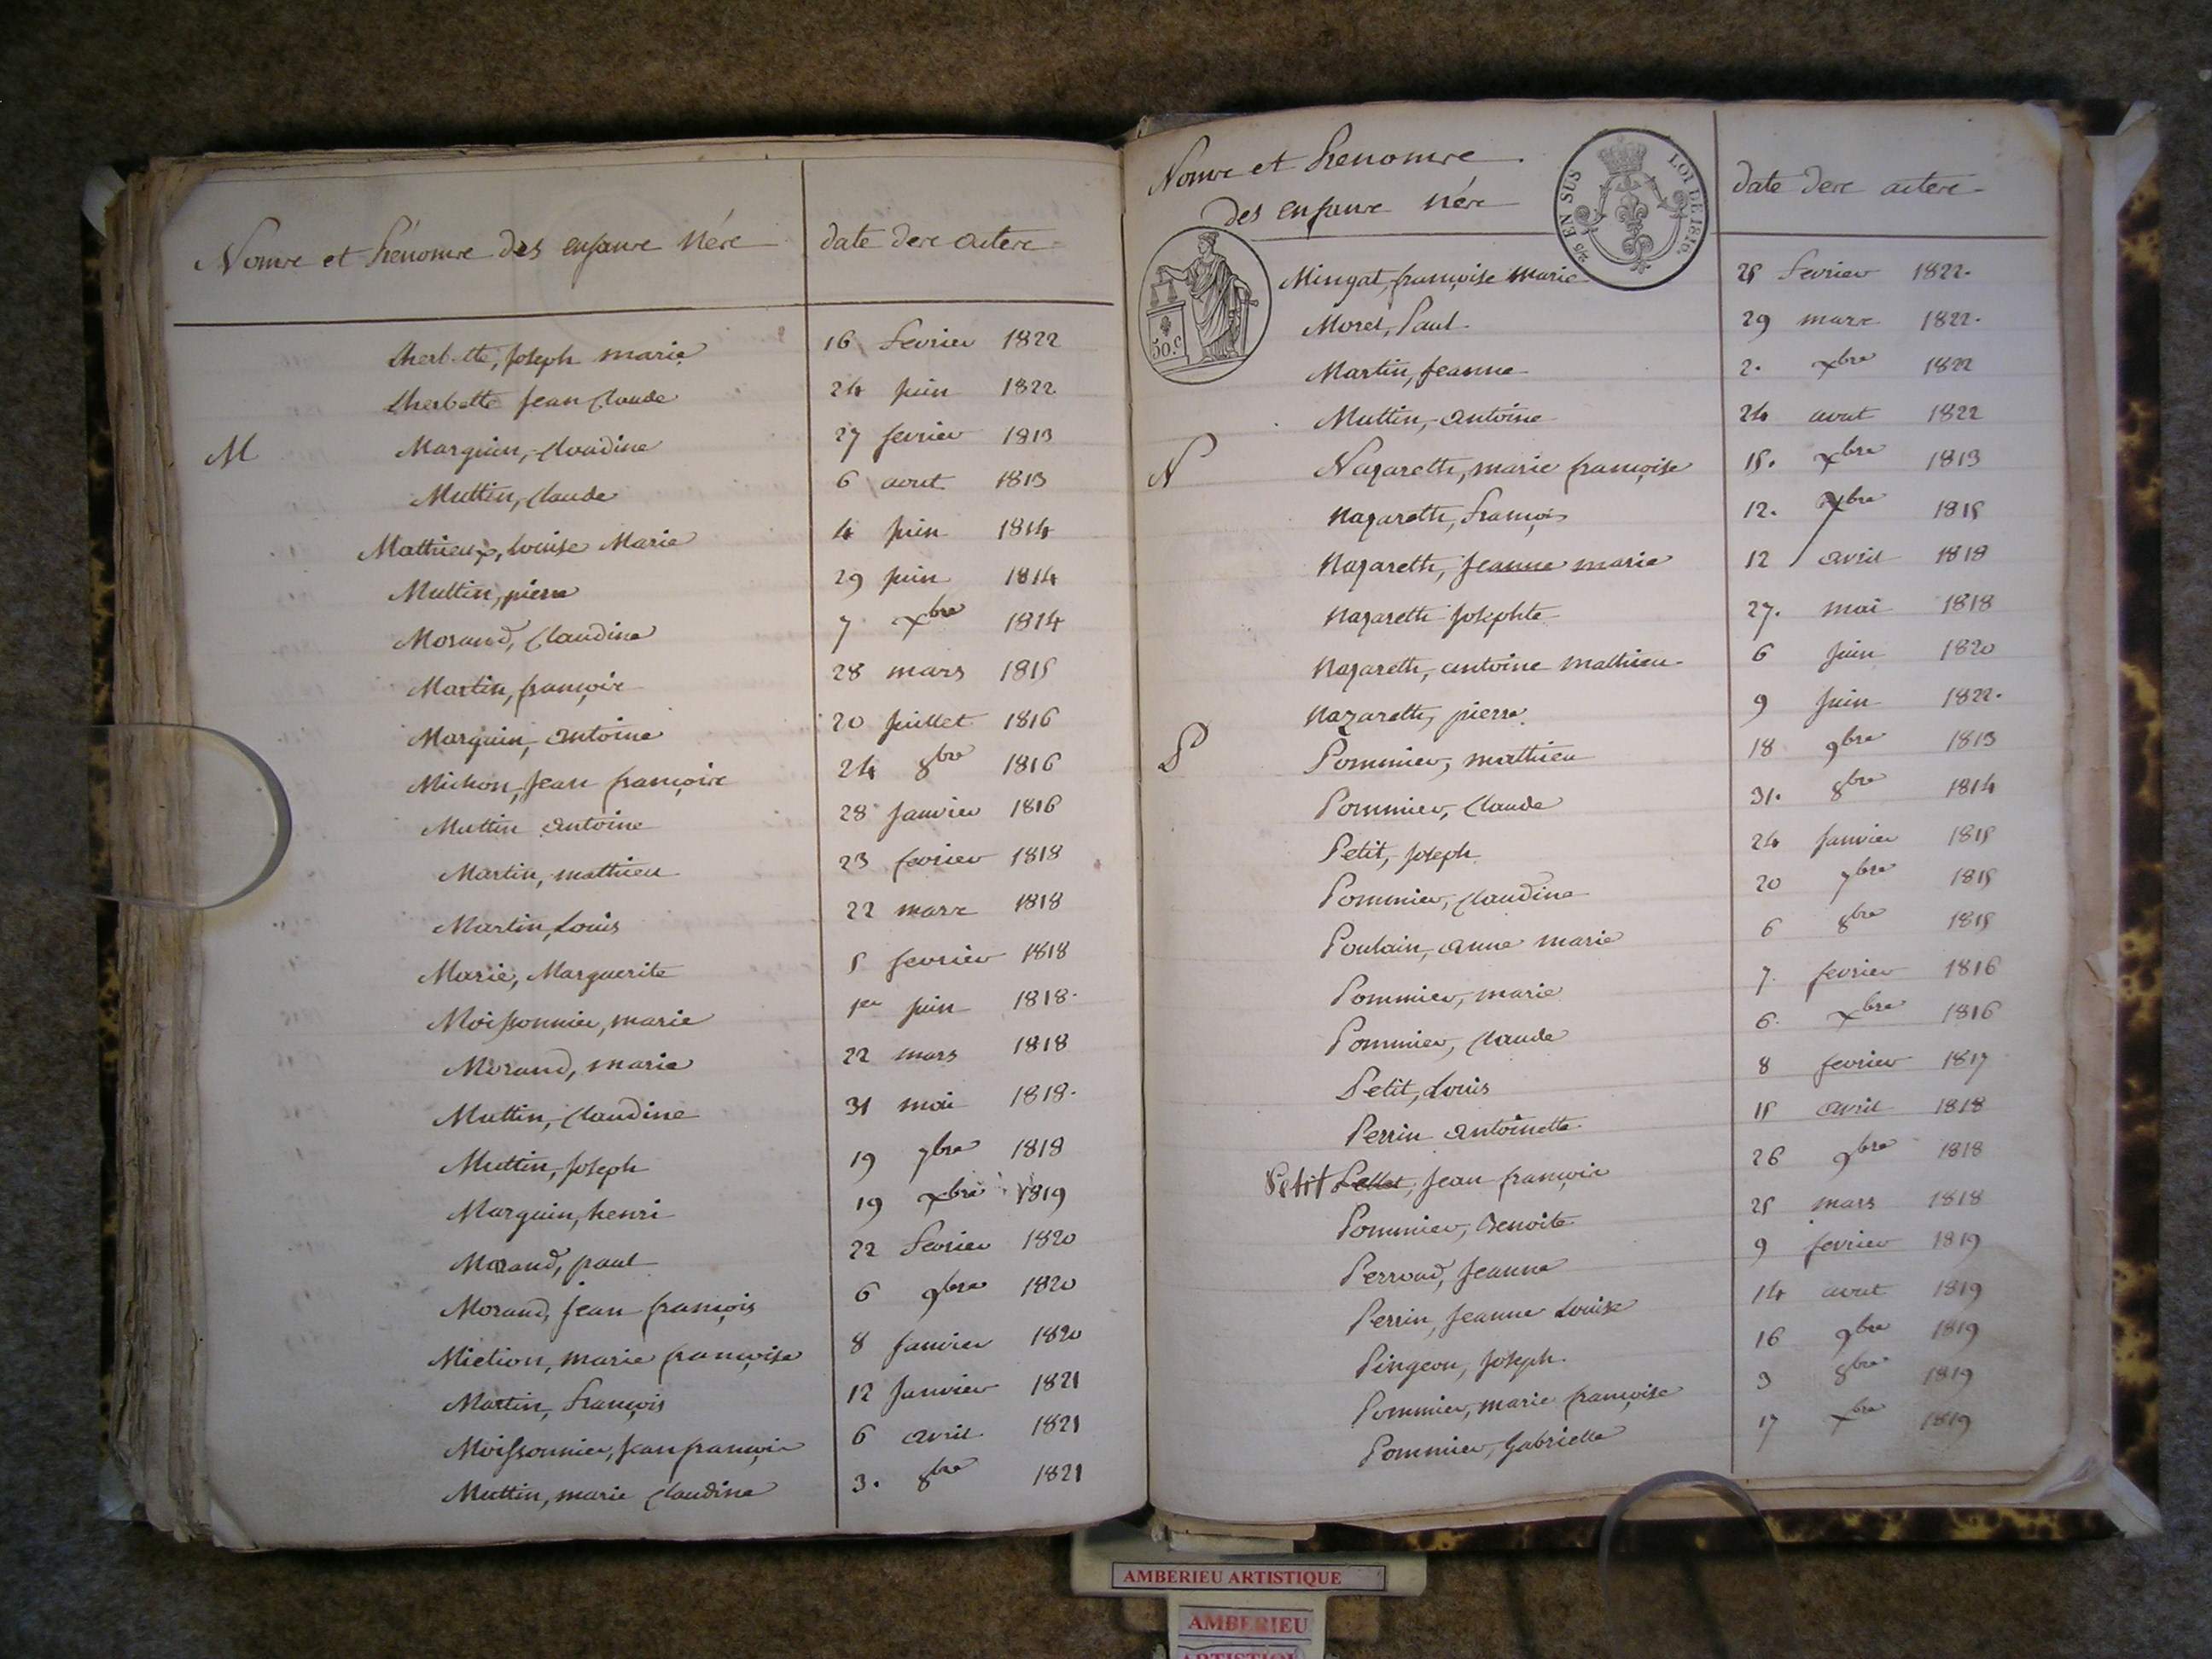 Noms et Prénoms des enfans nés date des actes
Lherbette, Joseph marie 16 fevrier 1822
Lherbette Jean Claude 24 Juin 1822
M Marguin, Claudine 27 fevrier 1813
Muttin, Claude 6 aout 1813
Mathieux, Louise Marie 4 Juin 1814
Muttin, pierre 29 Juin 1814
Morand, Claudine 7 xbre 1814
Martin, françois 28 mars 1815
Marguin, antoine 20 Juillet 1816
Michon, Jean françois 24 8bre 1816
Muttin antoine 28 Janvier 1816
Martin, mathieu 23 fevrier 1818
Martin, Louis 22 mars 1818
Marie, Marguerite 5 fevrier 1818
Moissonnier, marie 1er Juin 1818.
Morand, marie 22 mars 1818
Muttin, Claudine 31 mai 1818.
Muttin, Joseph 19 7bre 1818
Marguin, henri 19 xbre 1819
Morand, paul 22 fevrier 1820
Morand, Jean françois 6 9bre 1820
Miction, marie françoise 8 Janvier 1820
Martin, François 12 Janvier 1821
Moissonnier, Jean françois 6 avril 1821
Muttin, marie Claudine 3. 8bre 1821
Noms et Prenoms
des enfans nés date des actes
EN SUS LOI DE 1816.
50.c
Mingat, françoise marie 25 fevrier 1822.
Morel, Paul 29 mars 1822.
Martin, Jeanne 2. xbre 1822
Muttin, antoine 24 aout 1822
N Nazareth, marie françoise 15. xbre 1813
Nazareth, François 12. xbre 1815
Nazareth, Jeanne marie 12 avril 1818
Nazareth Josephte 27. mai 1818
Nazareth, antoine mathieu 6 Juin 1820
Nazareth, pierre 9 Juin 1822.
P Pommier, mathieu 18 9bre 1813
Pommier, Claude 31. 8bre 1814
Petit, Joseph 24 Janvier 1815
Pommier, Claudine 20 7bre 1815
Poulain, anne marie 6 8bre 1815
Pommier, marie 7. fevrier 1816
Pommier, Claude 6. xbre 1816
Petit, Louis 8 fevrier 1817
Perrin antoinette 15 avril 1818
Petit Pellet, Jean françois 26 9bre 1818
Pommier, Benoite 25 mars 1818
Perroud, Jeanne 9 fevrier 1819
Perrin, Jeanne Louise 14 aout 1819
Pingeon, Joseph. 16 9bre 1819
Pommier, marie françoise 3 8bre 1819
Pommier, Gabrielle 17 xbre 1819
AMBERIEU ARTISTIQUE
AMBERIEU
ARTISTIQUE